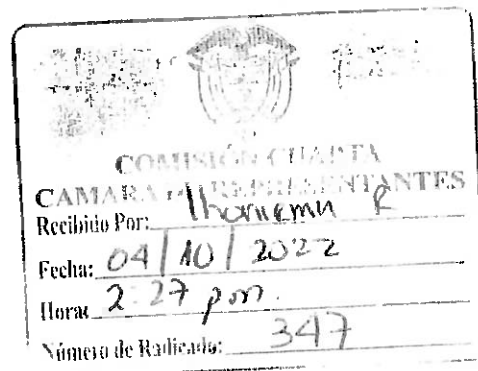 COMISIÓN CUARTA
CAMARA DE REPRESENTANTES
Recibido Por:
Fecha: 04/10/2022
Hora: 2:27 pm.
Número de Radicado: 347